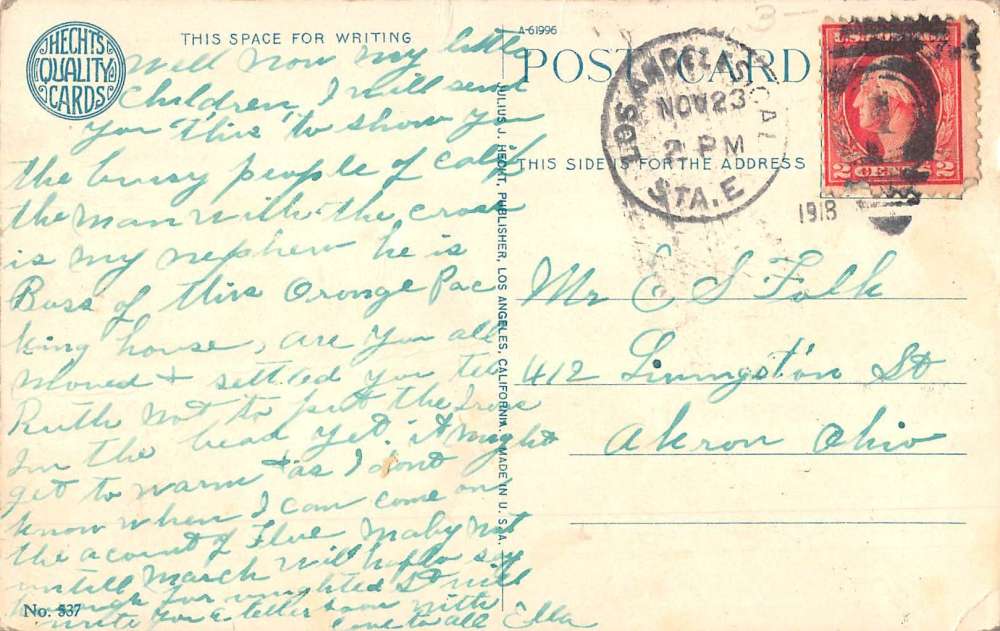 HECHTS
QUALITY
CARDS
THIS SPACE FOR WRITING
A-61996
3-
POST CARD
LOS ANGELES, CAL
NOV 23
2 PM
STA. E
1918
2 CENTS 2
THIS SIDE IS FOR THE ADDRESS
Well now my little
Children, I will send
you this to show you
the bussy people of Calif
the man with the cross
is my nephew he is
Boss of this Orange Pac
king house, are you all
moved + settled you tell
Ruth not to put the Iron
In the bead yet. it might
get to warm + as I dont
know when I can come on
the acount of Flue Maby not
untill March will hafto say
for will
write you a letter soon with
love to all Ella
JULIUS J. HECHT, PUBLISHER, LOS ANGELES, CALIFORNIA. MADE IN U. S. A.
Mr E S Folk
412 Livingston St
Akron Ohio
No. 537